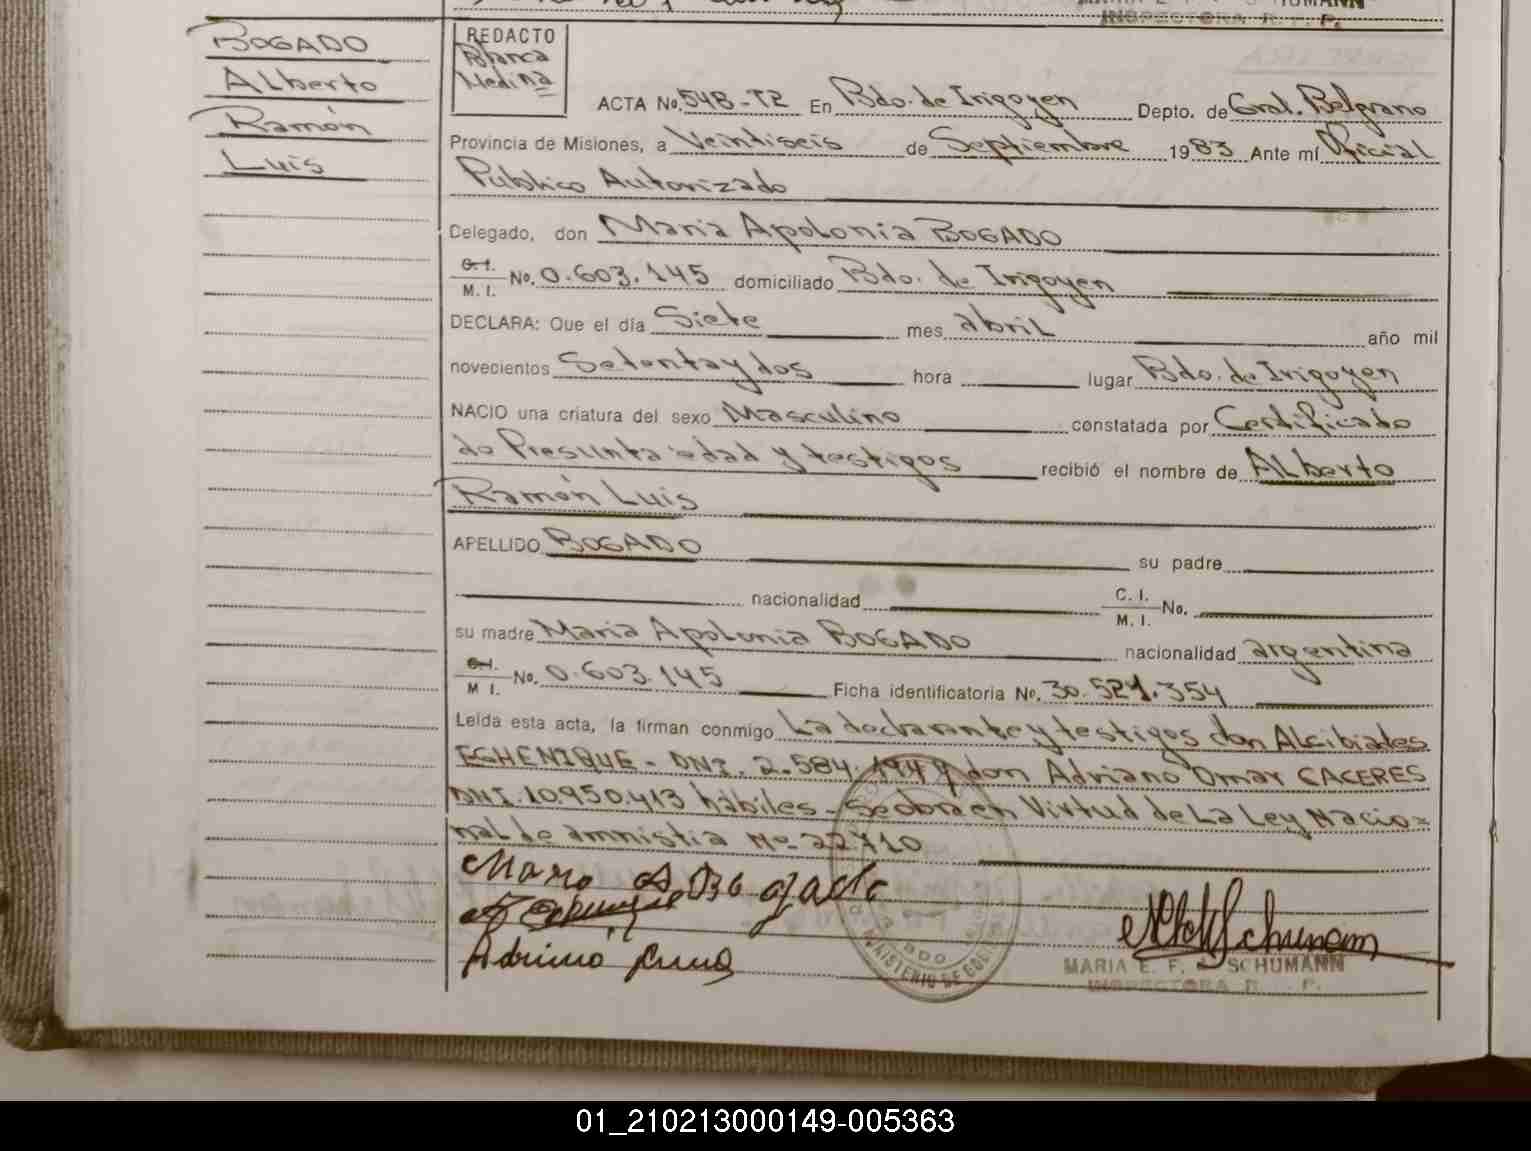 BOGADO
Alberto
Ramón
Luis
REDACTO
Blanca
Medina
ACTA No. 548-T2 En Bdo. de Irigoyen Depto. de Gral. Belgrano
Provincia de Misiones, a Veintiseis de Septiembre 1983 Ante mí Oficial
Público Autorizado
Delegado, don Maria Apolonia BOGADO
C.I. M. I. No. 0.603.145 domiciliado Bdo. de Irigoyen
DECLARA: Que el día Siete mes abril año mil
novecientos Setentaydos hora lugar Bdo. de Irigoyen
NACIO una criatura del sexo Masculino constatada por Certificado
de Presunta edad y testigos recibió el nombre de Alberto
Ramón Luis
APELLIDO BOGADO su padre
nacionalidad C. I. M. I. No.
su madre Maria Apolonia BOGADO nacionalidad argentina
C.I. M I. No. 0.603.145 Ficha identificatoria No. 30.521.354
Leída esta acta, la firman conmigo La declarante y testigos don Alcibiades
ECHENIQUE - DNI. 2.584.194 y don Adriano Omar CACERES
DNI. 10.950.413 hábiles - Se obra en Virtud de La Ley Nacio=
nal de amnistia No. 22.710
MARIA E. F. SCHUMANN
INSPECTORA R. P.
01_210213000149-005363